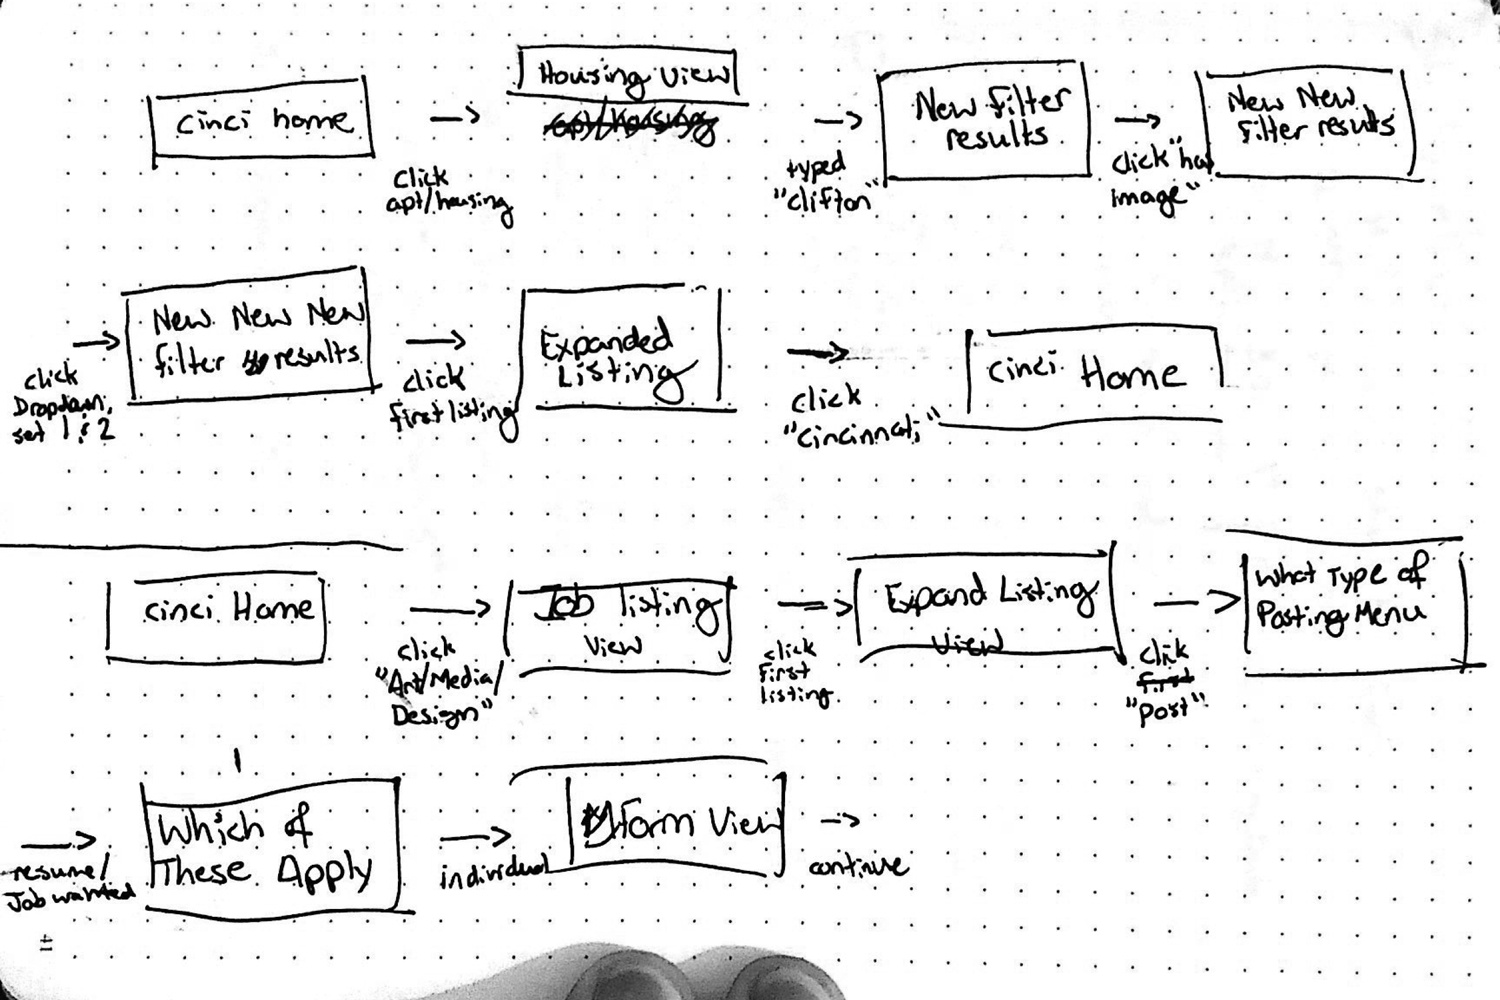 cinci home
Click
apt/housing
Housing View
apt/housing
typed
"clifton"
New Filter
results
click "has
image"
New New
Filter results
click
Dropdown,
set 1 & 2
New New New
filter results
click
first listing
Expanded
Listing
click
"cincinnati"
cinci Home
cinci Home
click
"Art/Media/
Design"
Job listing
view
click
First
listing
Expand Listing
View
click
first
"post"
What Type of
Posting Menu
resume/
Job wanted
Which of
These Apply
individual
Form View
continue